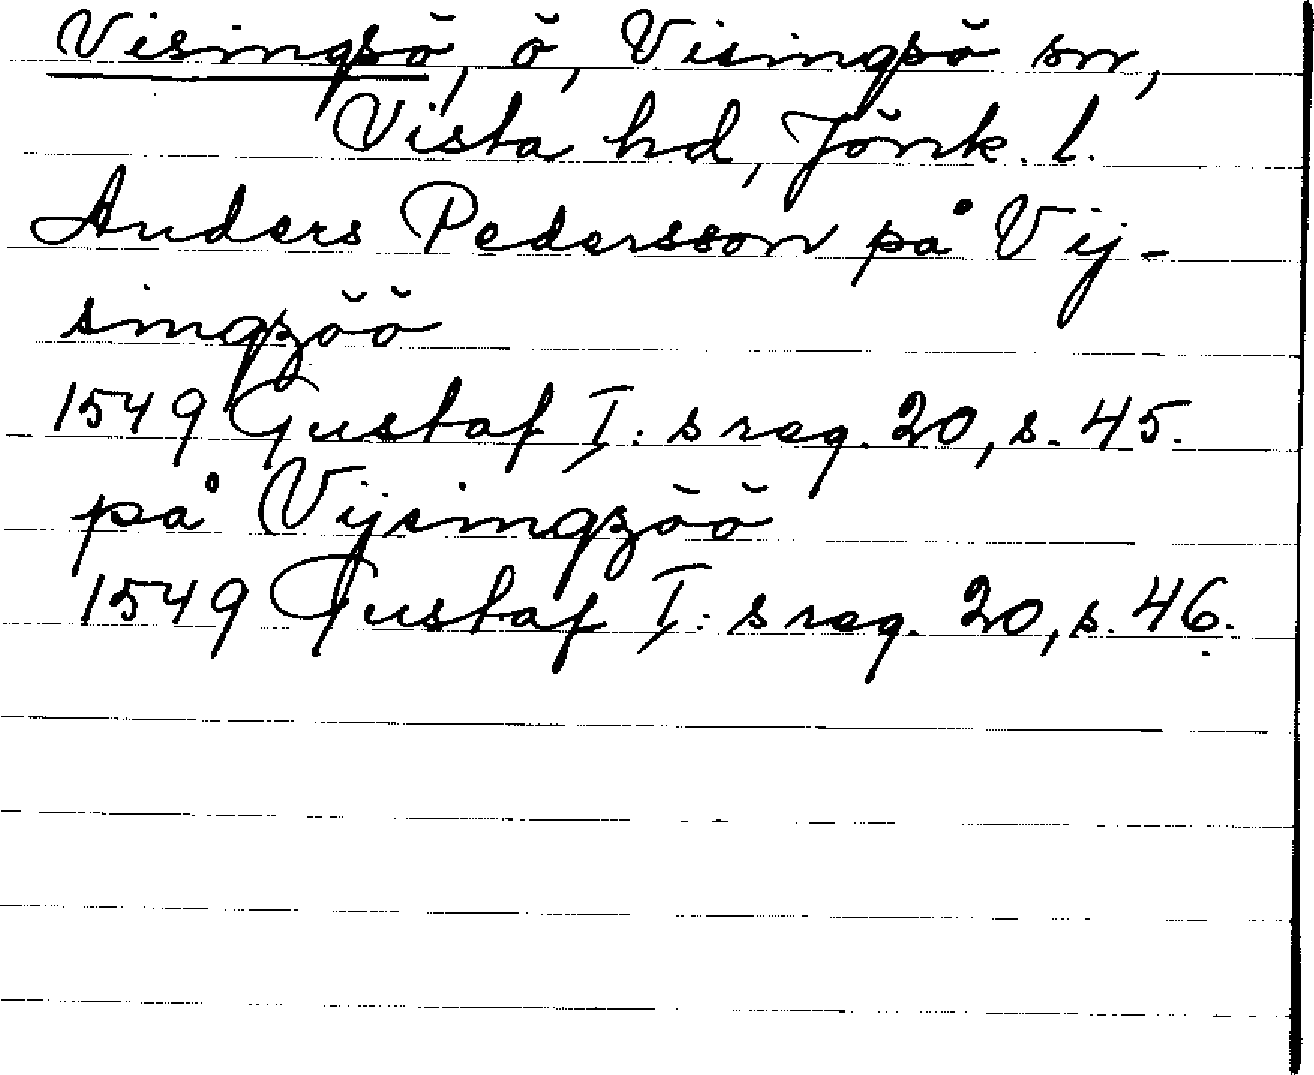 Visingsö, ö, Visingsö sn,
Vista hd, Jönk. l.
Anders Pedersson på Vij-
singzöö
1549 Gustaf I:s reg. 20, s. 45.
på Vijsingzöö
1549 Gustaf I:s reg. 20, s. 46.